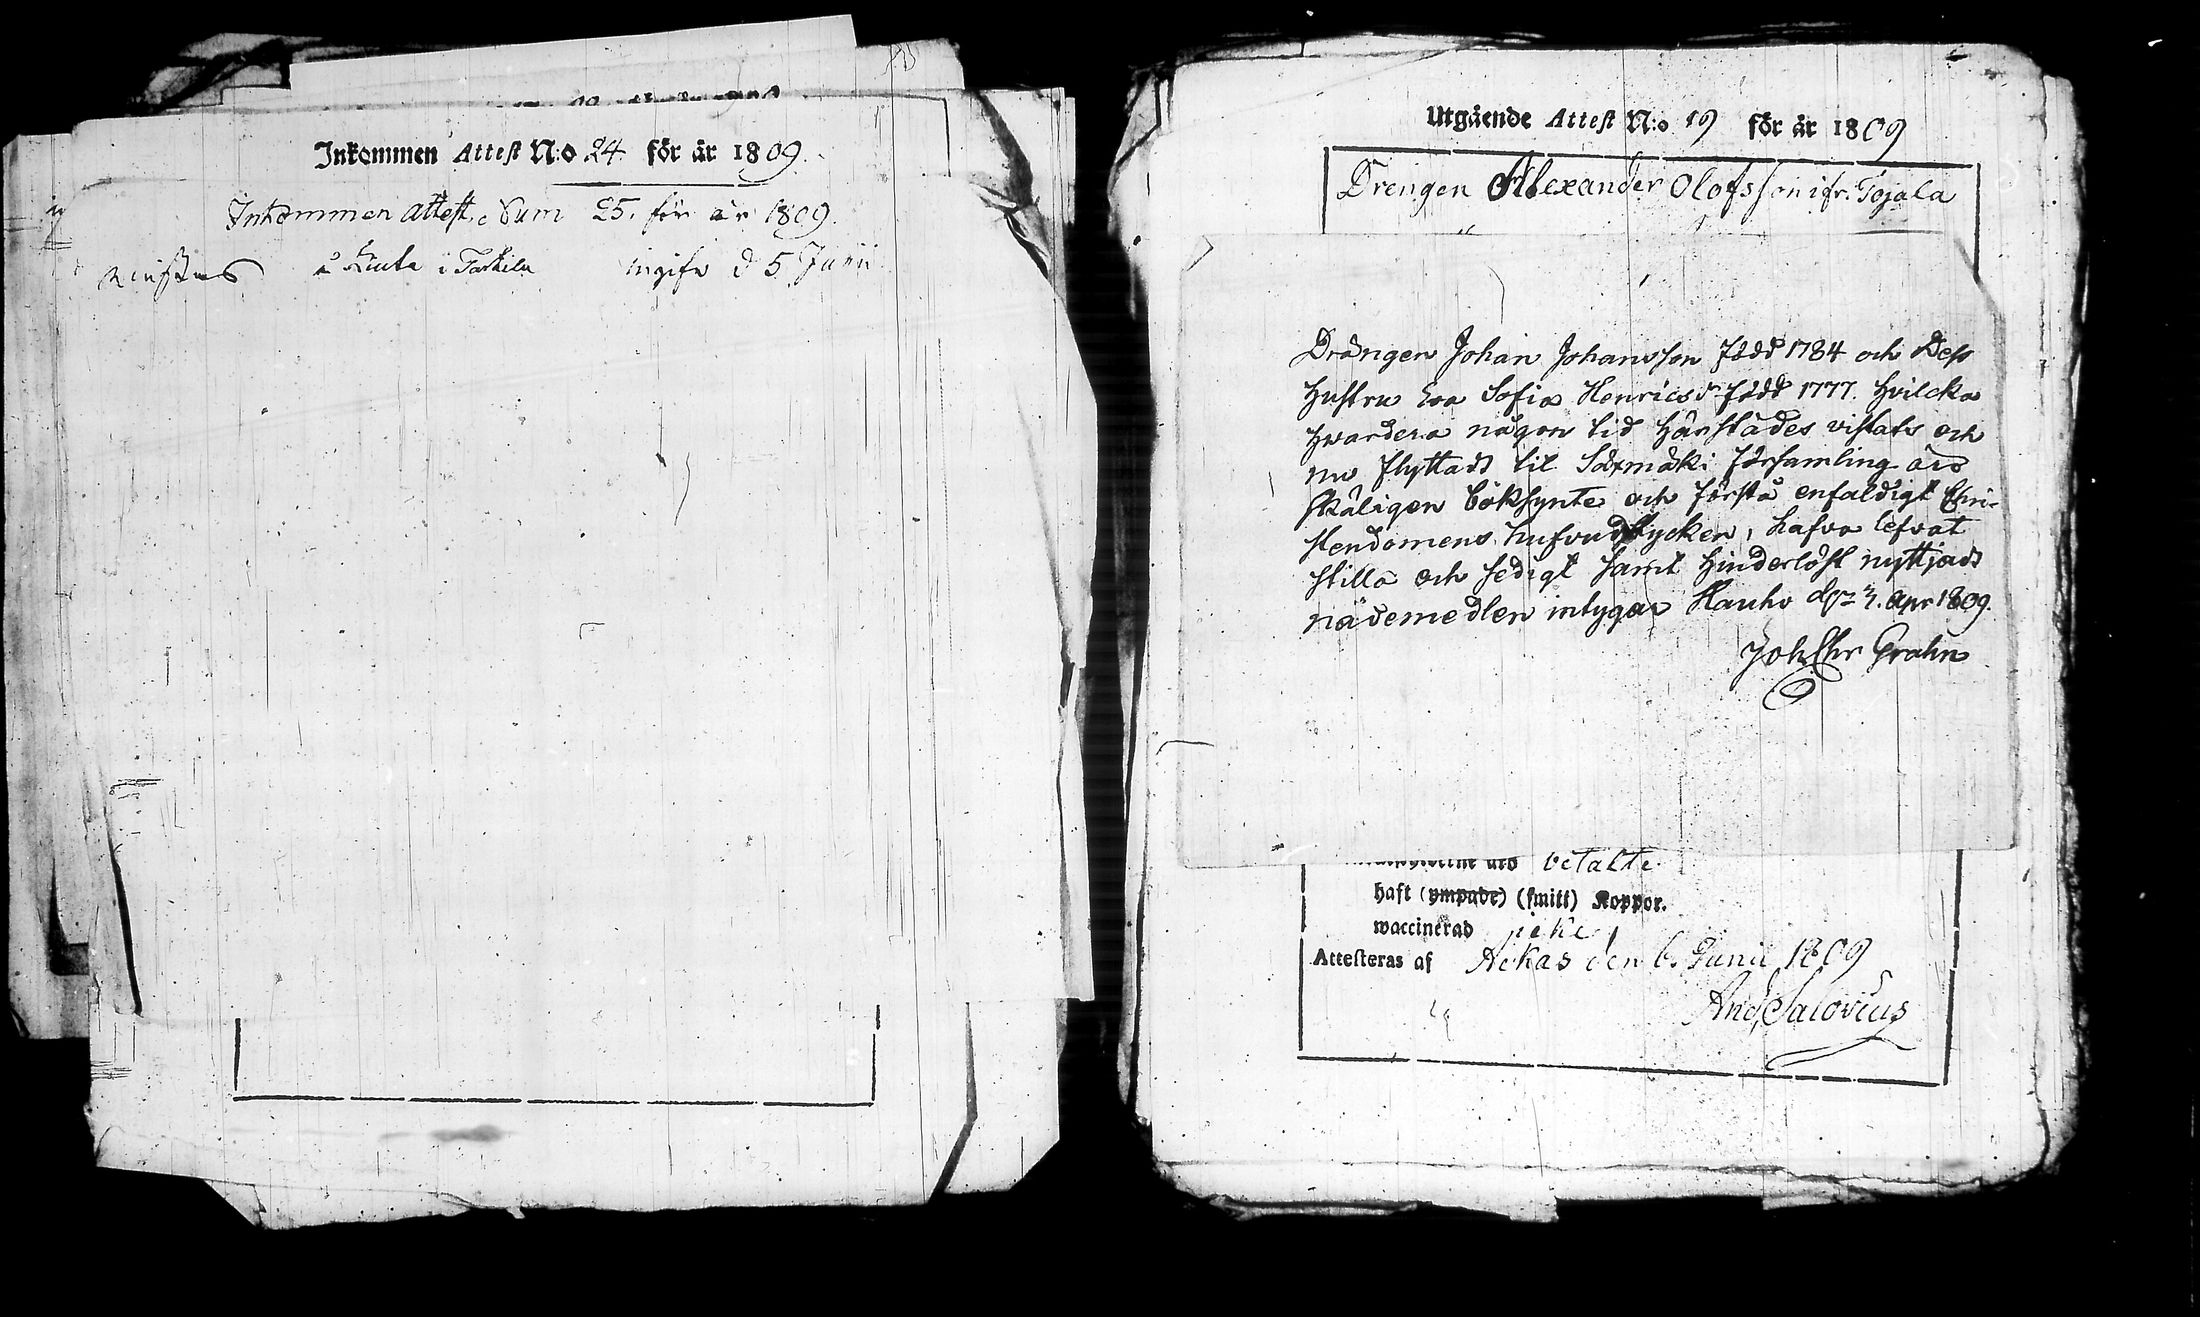 Inkommen Attest N:o 24. för år 1809.
Inkommen attest. Num 25. för år 1809.
å i ingifv d 5 Junii
Utgående Attest N:o 19 för år 1809
Drengen Alexander Olofsson ifr. Tojala
Drängen Johan Johansson född 1784 och Dess
Hustru Eva Sofia Henricsdr född 1777. hvilcka
hvardera någon tid härstädes vistats och
nu flyttadt til Säxmäki församling äro
skäligen boksynte och förstå enfaldigt Chri-
stendomens hufvudstycken, hafva lefvat
stilla och sedigt samt hinderlöst nyttjadt
nådemedlen intygar Hauho Apr 1809.
Joh Chr Grahn
äro betalte
haft (ympade) (smitt) Koppor.
waccinerad icke
Attesteras af Ackas den 6. Junii 1809
And, Salovius